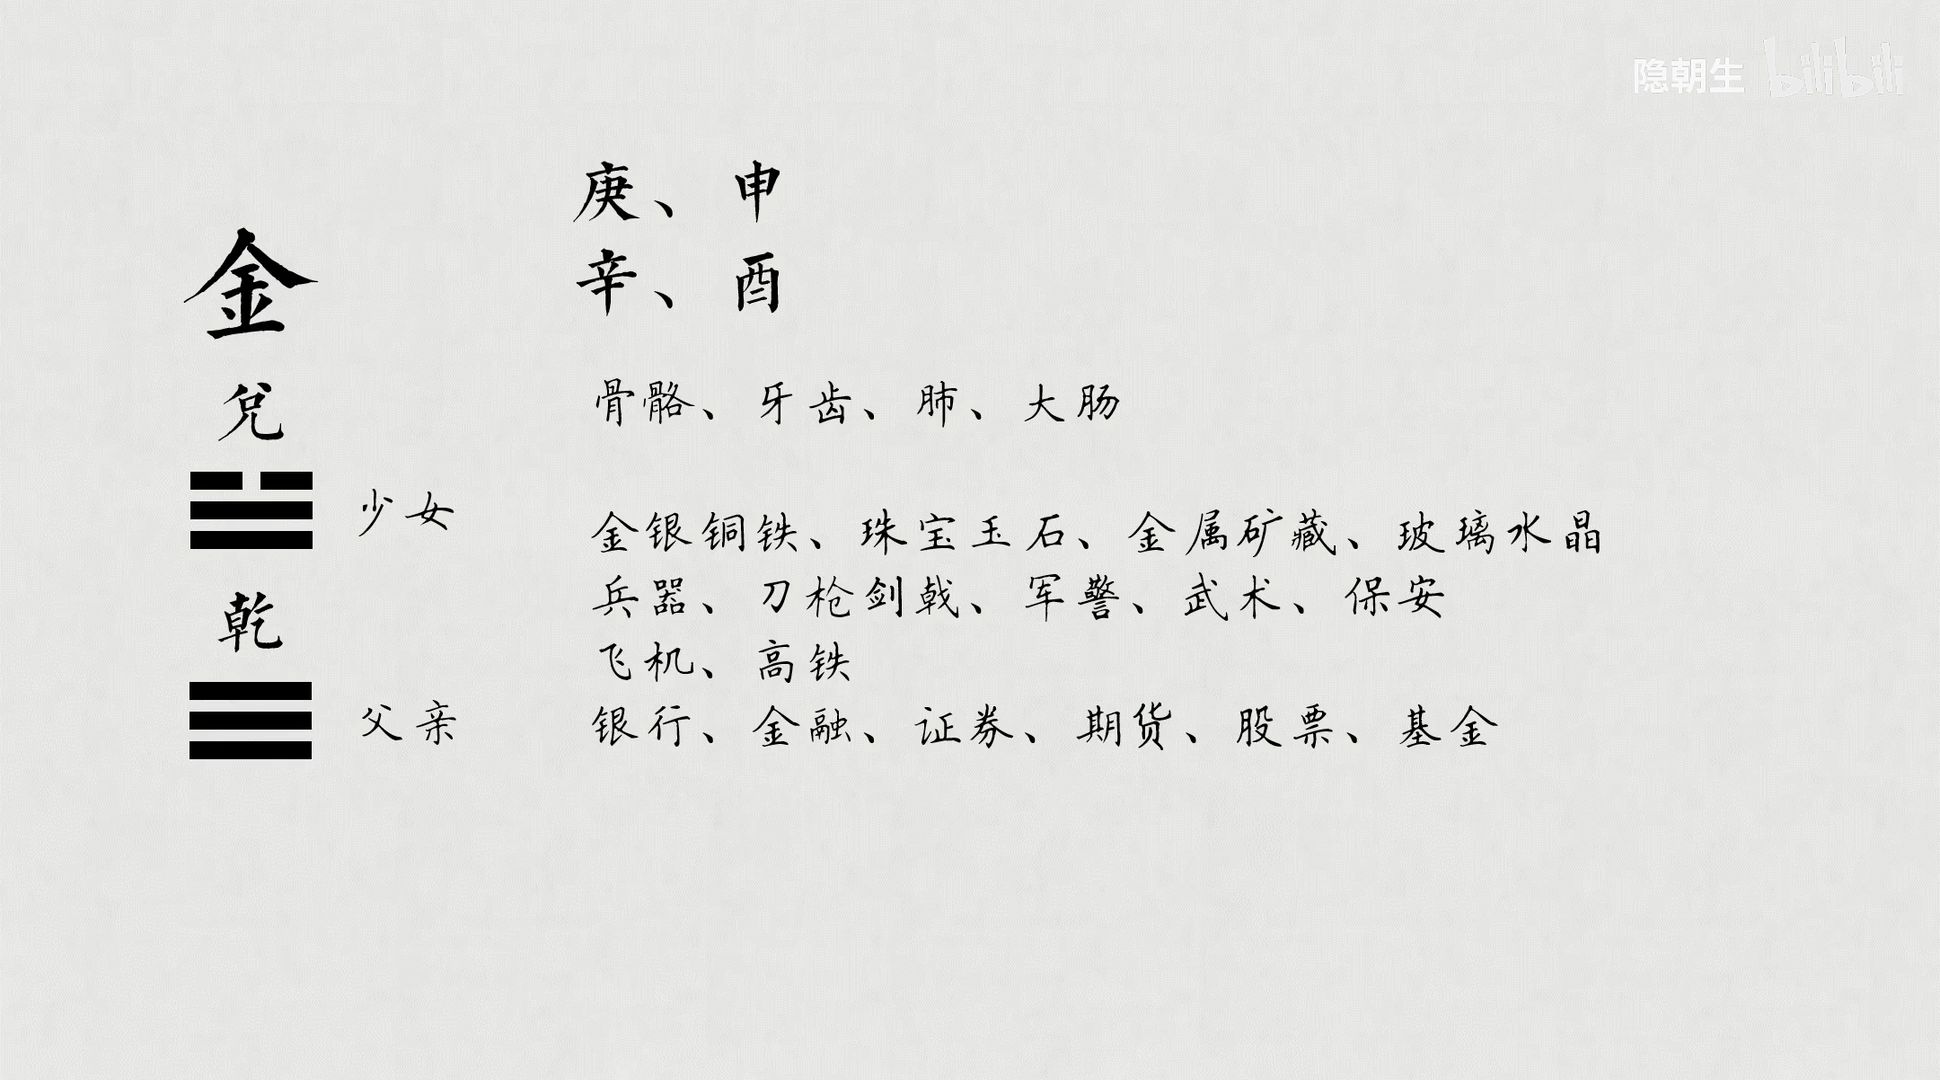 隐朝生 bilibili
庚、申
辛、酉
金
兑
骨骼、牙齿、肺、大肠
少女
金银铜铁、珠宝玉石、金属矿藏、玻璃水晶
兵器、刀枪剑戟、军警、武术、保安
乾
飞机、高铁
父亲
银行、金融、证券、期货、股票、基金